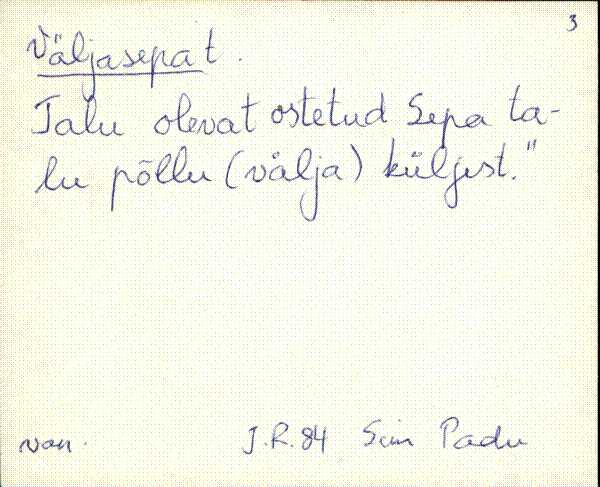 3
Väljasepat.
Talu olevat ostetud Sepa ta-
lu põllu (välja) küljest."
van. J.R.84 Siin Padu